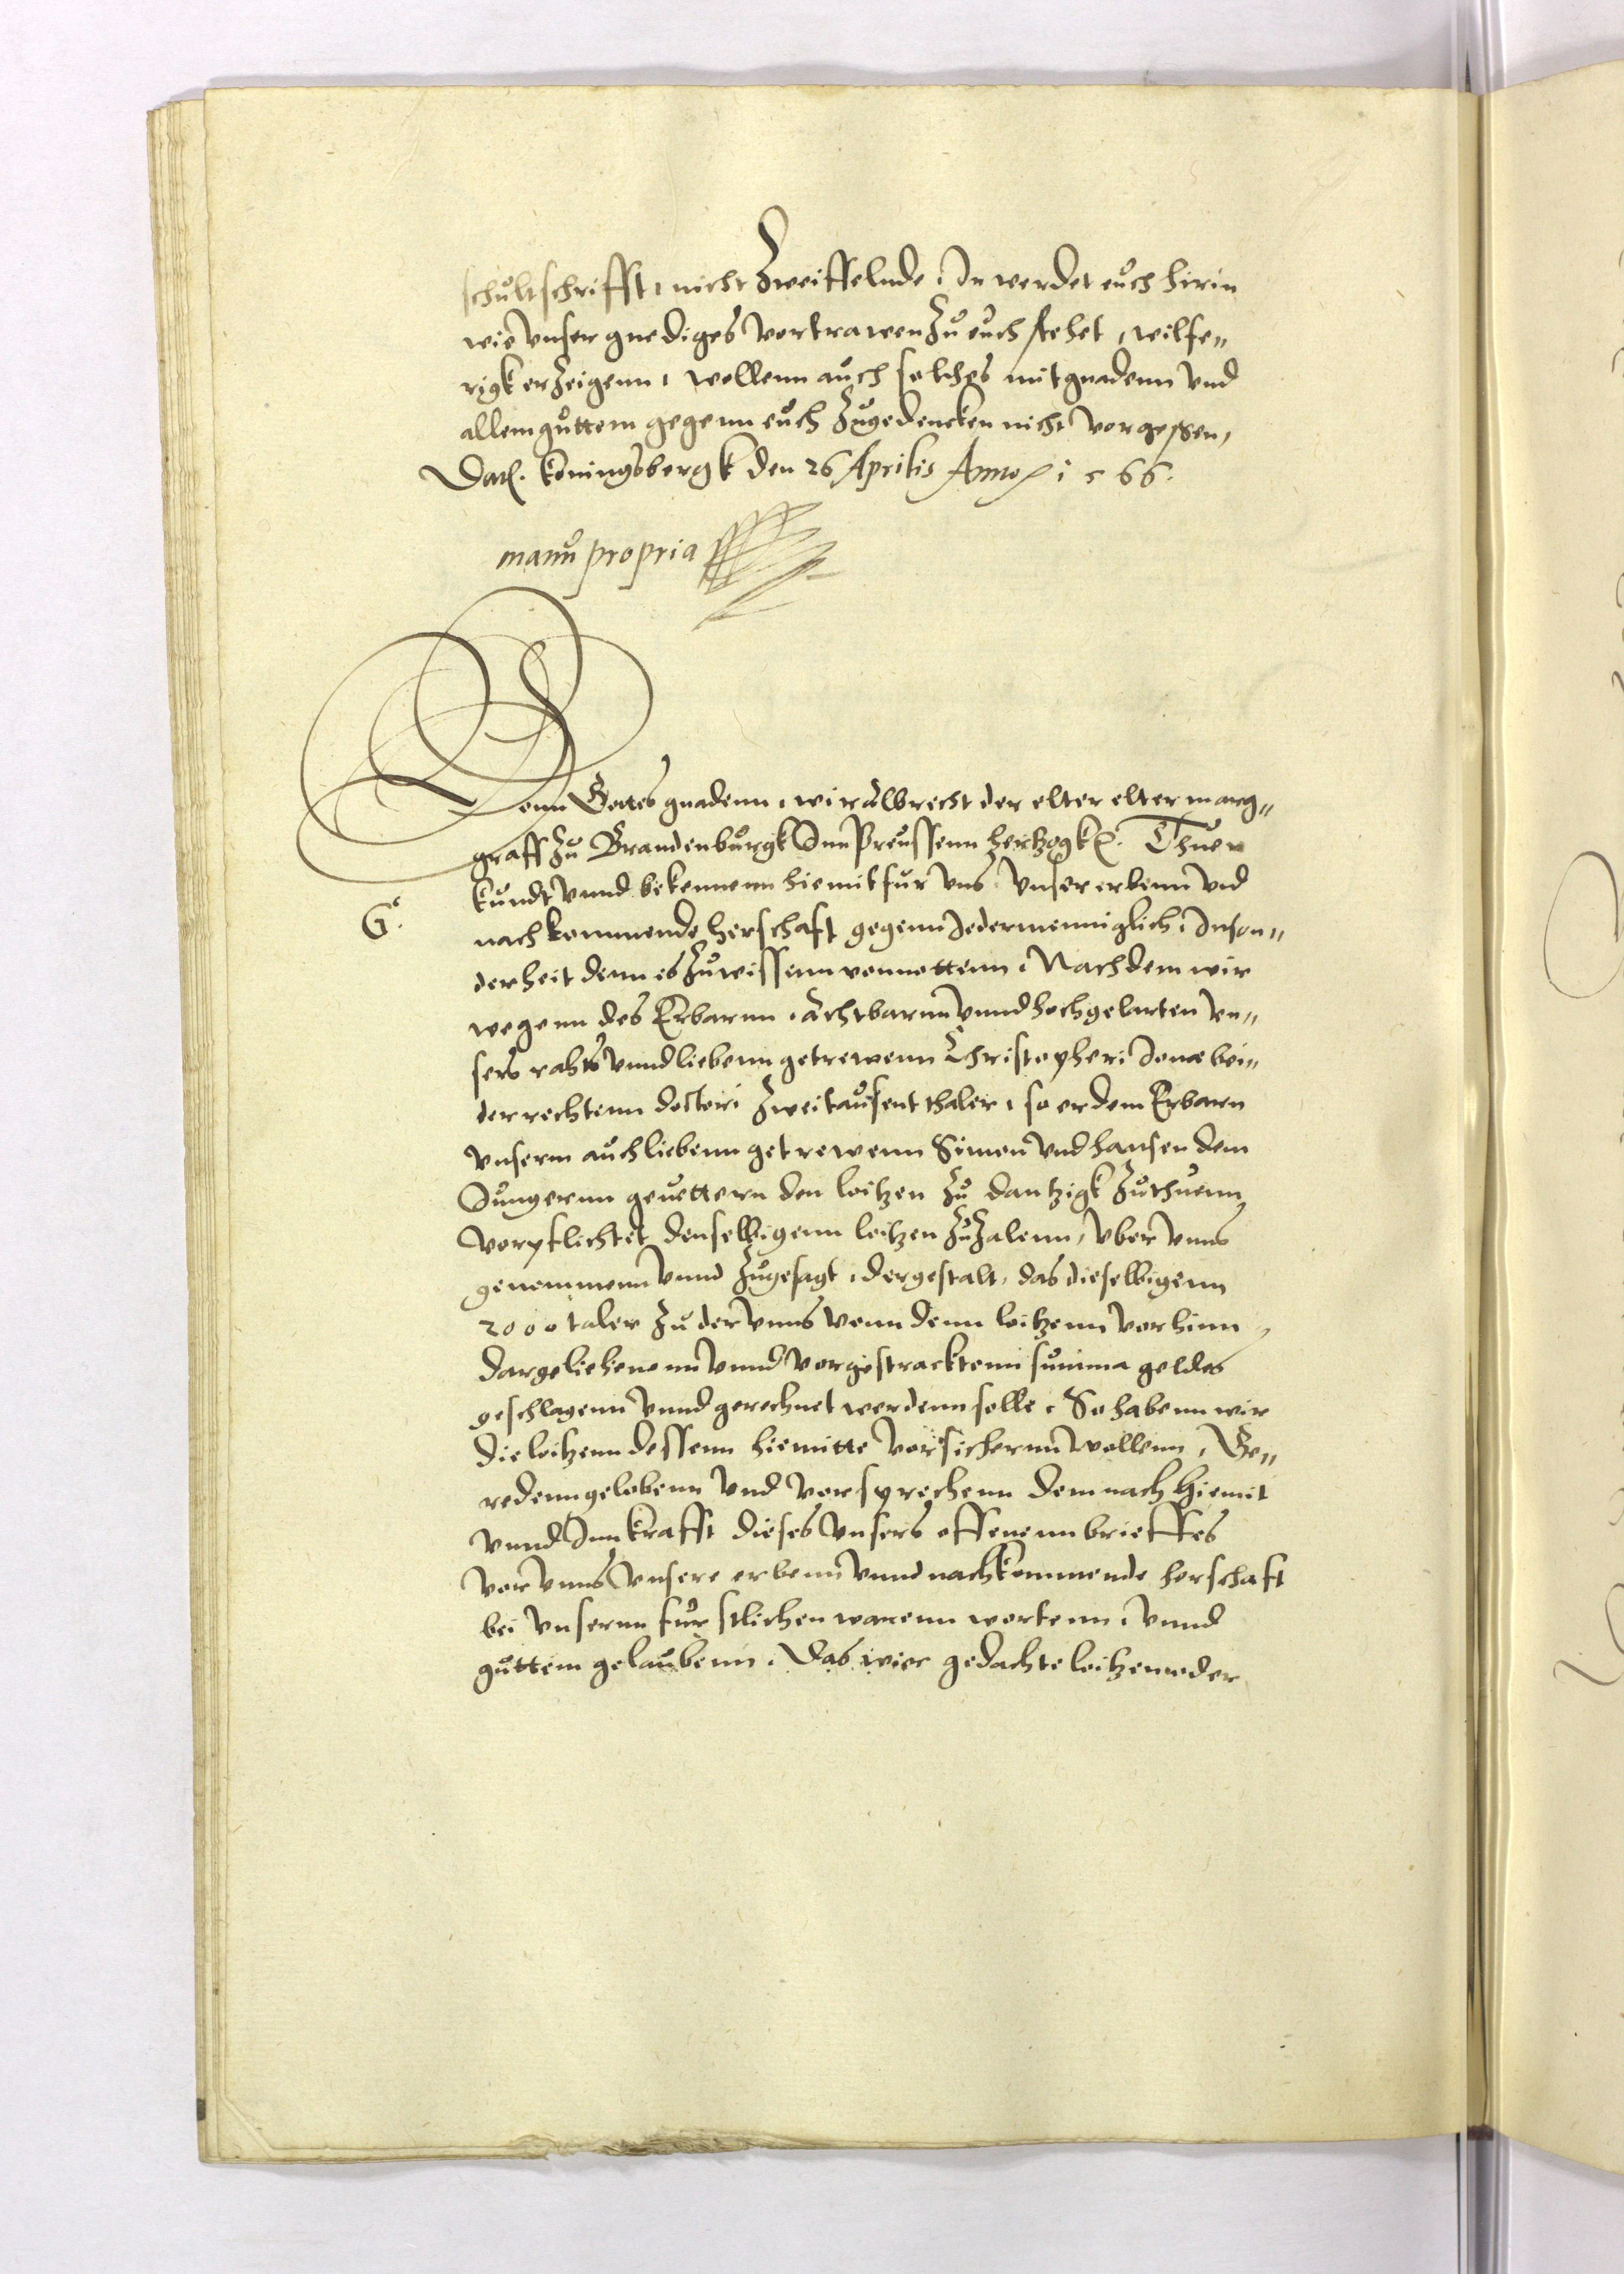 schultschrifft, nicht Zweiffelnde, Ir werdet euch hirin
wie vnser gnediges vertrawen Zu euch stehet, wilfe„
rigk erZeigenn, wollenn auch solchs mit gnadenn vnd
allem guttem gegenn euch Zugedencken nicht vergessen,
Dat. Koningsbergk den 26 Aprilis Anno 1566.
manu propria
Vonn Gottes gnadenn, wir albrecht der elter elter marg„
graff Zu Brandenburgk Inn Preussenn hertzogk Thuen
G.
kundt vnnd bekennenn hiemit fur vns, vnser erbenn vnd
nachkommende herschaft gegenn Jedermenniglich, Inson„
derheit denn es Zu wissenn vonnottenn, Nachdem wir
wegenn des Erbarnn, achtbarnn vnnd hochgelarten vn„
sers rahts vnnd liebenn getrewenn Christopheri Jonæ bei„
der rechtenn doctori Zweitausent thaler, so er dem Erbarn
vnserm auch liebenn getrewenn Simon vnd hansen dem
Jungernn geuettern den loitzen Zu dantzigk Zuthuenn
verpflichtet, denselbigenn loitzen ZuZalenn, vber vnns
genommenn vnnd Zugesagt, dergestalt, das dieselbigenn
2000 taler Zu der vnns vonn denn loitzenn vorhinn
dargelichenenn vnnd vorgestracktenn summa geldes
geschlagenn vnnd gerechnet werdenn solle, So habenn wir
die loitzenn dessenn hiemitte vorsichernn wollenn, Ge„
redenn gelobenn vnd vorsprechenn demnach hiemit
vnnd Inn krafft dieses vnsers offenenn brieffes
vor vnns vnsere erbenn vnnd nachkommende herschaft
bei vnsernn furstlichen warenn wortenn, vnnd
guttem gelaubenn, Das wier gedachte loitzenn oder